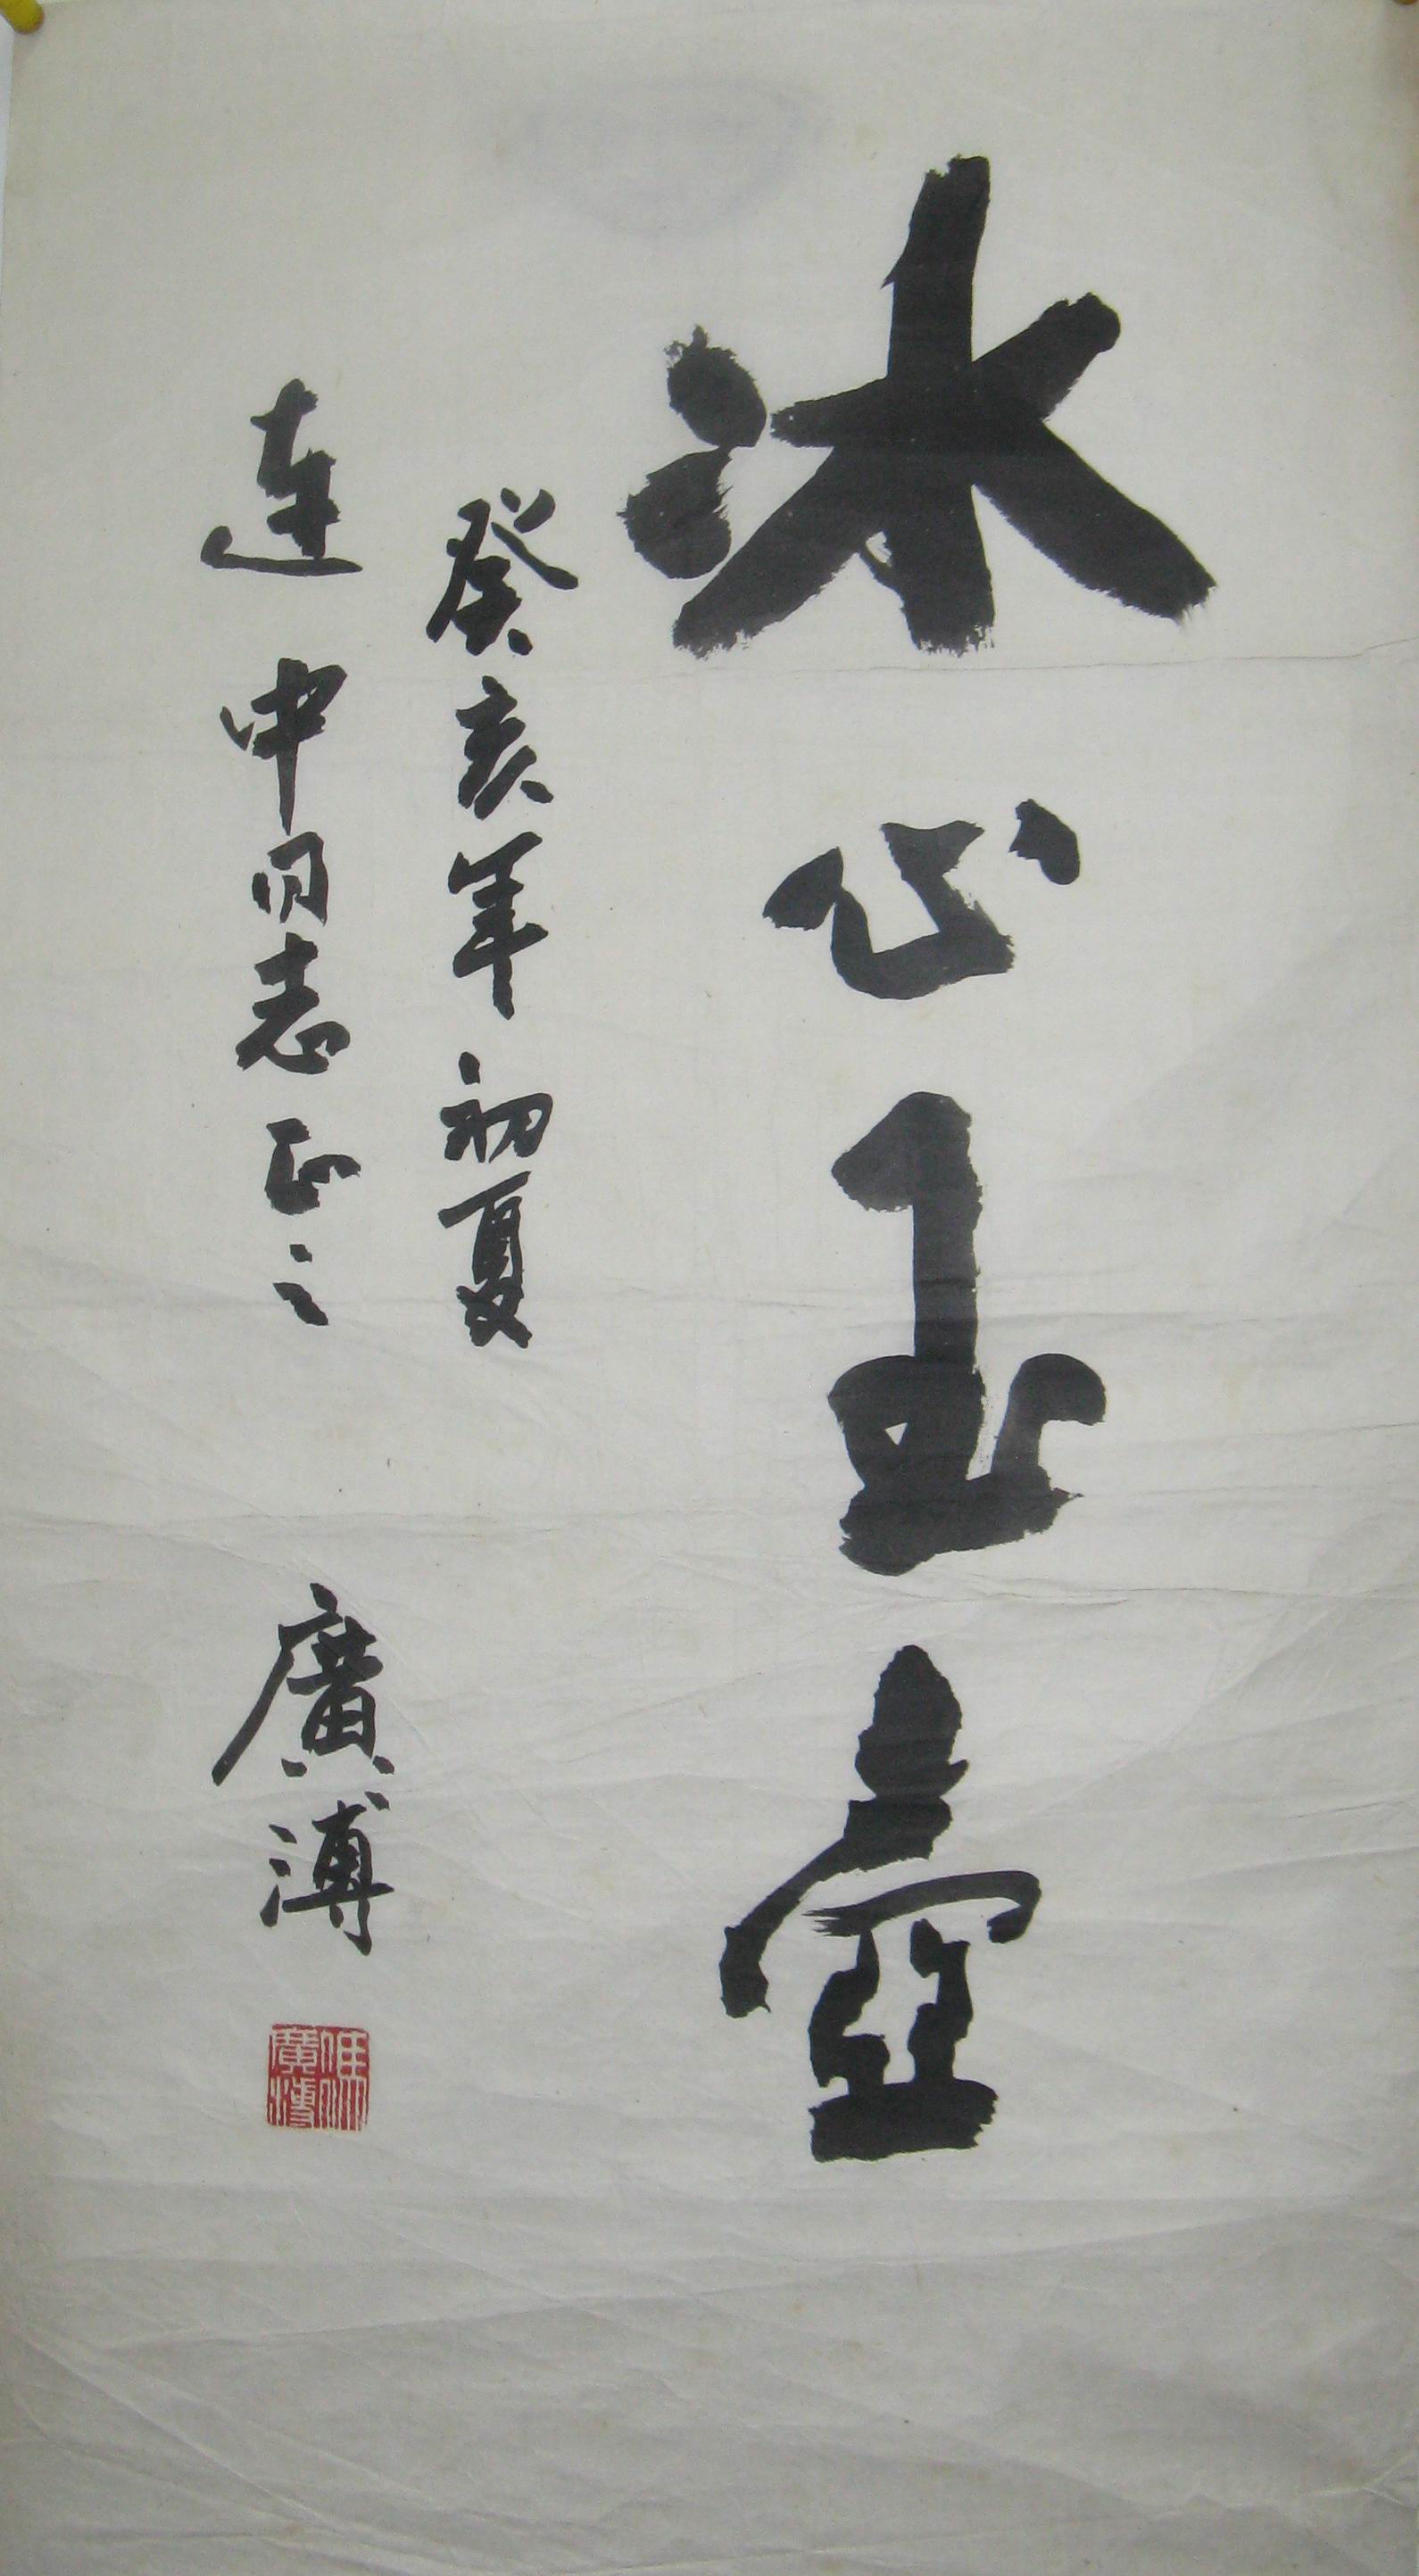 冰心玉壺
癸亥年初夏
連中同志正之
廣溥